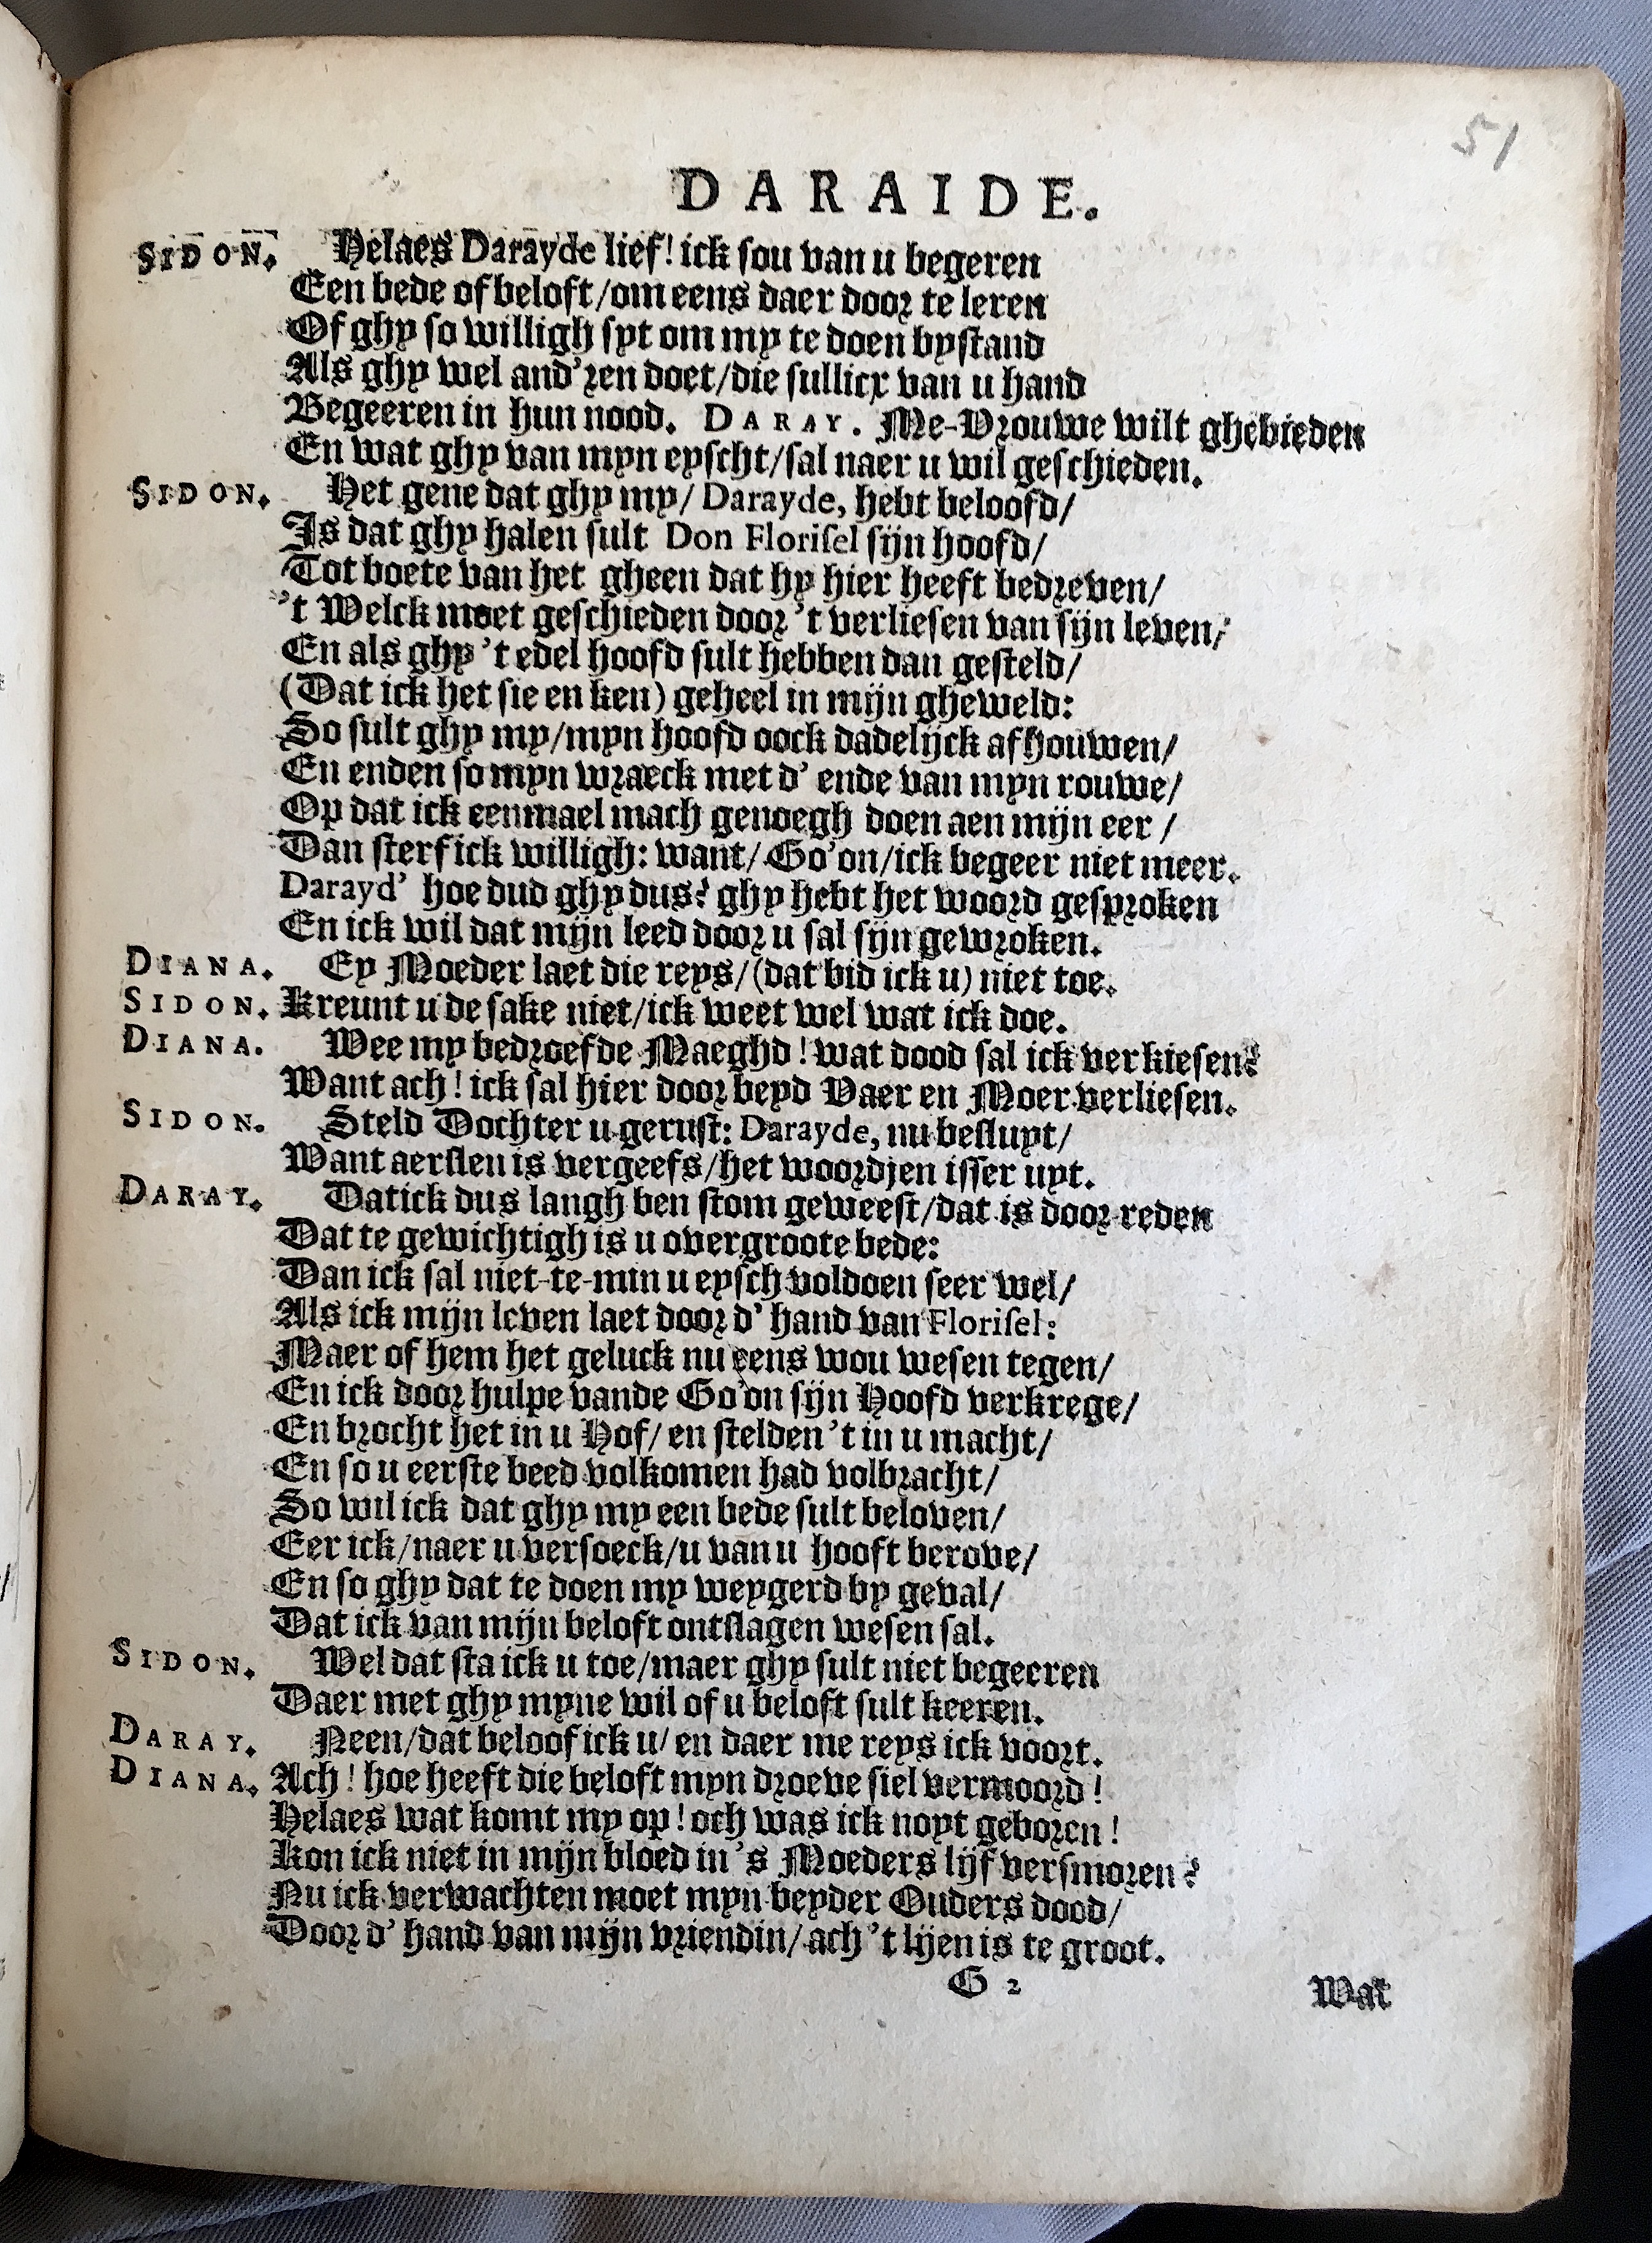 51
DARAIDE.
SIDON. Helaes Darayde lief! ick sou van u begeren
Een bede of beloft/om eens daer door te leren
Of ghy so willigh syt om my te doen bystand
Als ghy wel and'ren doet/die sullicx van u hand
Begeeren in hun nood. DARAY. Me-Vrouwe wilt ghebieden
En wat ghy van myn eyscht/sal naer u wil geschieden.
SIDON. Het gene dat ghy my/ Darayde, hebt beloofd/
Is dat ghy halen sult Don Florisel sijn hoofd/
Tot boete van het gheen dat hy hier heeft bedreven/
't Welck moet geschieden door 't verliesen van sijn leven/
En als ghy 't edel hoofd sult hebben dan gesteld/
(Dat ick het sie en ken) geheel in mijn gheweld:
So sult ghy my/myn hoofd oock dadelijck afhouwen/
En enden so myn wraeck met d' ende van myn rouwe/
Op dat ick eenmael mach genoegh doen aen mijn eer/
Dan sterf ick willigh: want/ Go'on/ick begeer niet meer.
Darayd' hoe dud ghy dus? ghy hebt het woord gesproken
En ick wil dat mijn leed door u sal sijn gewroken.
DIANA. Ey Moeder laet die reys/(dat bid ick u) niet toe.
SIDON. Kreunt u de sake niet/ick weet wel wat ick doe.
DIANA. Wee my bedroefde Maeghd! wat dood sal ick verkiesen?
Want ach! ick sal hier door beyd Vaer en Moer verliesen.
SIDON. Steld Dochter u gerust: Darayde, nu besluyt/
Want aerslen is vergeefs/het woordjen isser uyt.
DARAY. Dat ick dus langh ben stom geweest/dat is door reden
Dat te gewichtigh is u overgroote bede:
Dan ick sal niet-te-min u eysch voldoen seer wel/
Als ick mijn leven laet door d' hand van Florisel:
Maer of hem het geluck nu eens wou wesen tegen/
En ick door hulpe vande Go'on sijn Hoofd verkrege/
En brocht het in u Hof/ en stelden 't in u macht/
En so u eerste beed volkomen had volbracht/
So wil ick dat ghy my een bede sult beloven/
Eer ick/naer u versoeck/u van u hooft berove/
En so ghy dat te doen my weygerd by geval/
Dat ick van mijn beloft ontslagen wesen sal.
SIDON. Wel dat sta ick u toe/maer ghy sult niet begeeren
Daer met ghy myne wil of u beloft sult keeren.
DARAY. Neen/dat beloof ick u/ en daer me reys ick voort.
DIANA. Ach! hoe heeft die beloft myn droeve siel vermoord!
Helaes wat komt my op! och was ick noyt geboren!
Kon ick niet in mijn bloed in 's Moeders lijf versmoren?
Nu ick verwachten moet myn beyder Ouders dood/
Door d' hand van mijn vriendin/ ach 't lijen is te groot.
G 2
Wat